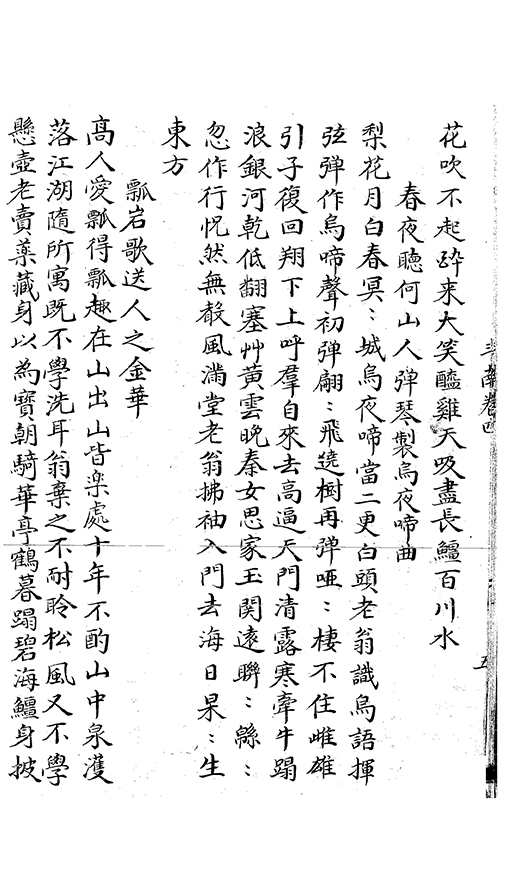 花吹不起酔来大笑醯雞天吸盡長鱷百川水
春夜聽何山人彈琴製烏夜啼曲
梨花月白春冥〻城烏夜啼當二更白頭老翁識鳥語揮
弦弹作烏啼聲初弹翩〻飛遶樹再弹啞〻棲不住雌雄
引子復回翔下上呼羣自來去高逼天門清露寒牽牛蹋
浪銀河乾低翻塞艸黃雲晚秦女思家玉関遠聯〻緜〻
忽作行怳然無殸風滿堂老翁拂袖入門去海日杲〻生
東方
瓢岩歌送人之金華
髙人愛瓢得瓢趣在山出山皆楽處十年不酌山中泉濩
落江湖隨所寓既不學洗耳翁棄之不耐聆松風又不學
懸壺老賣藥藏身以為寶朝騎華亭鶴暮蹋碧海鱷身披
卷四
五